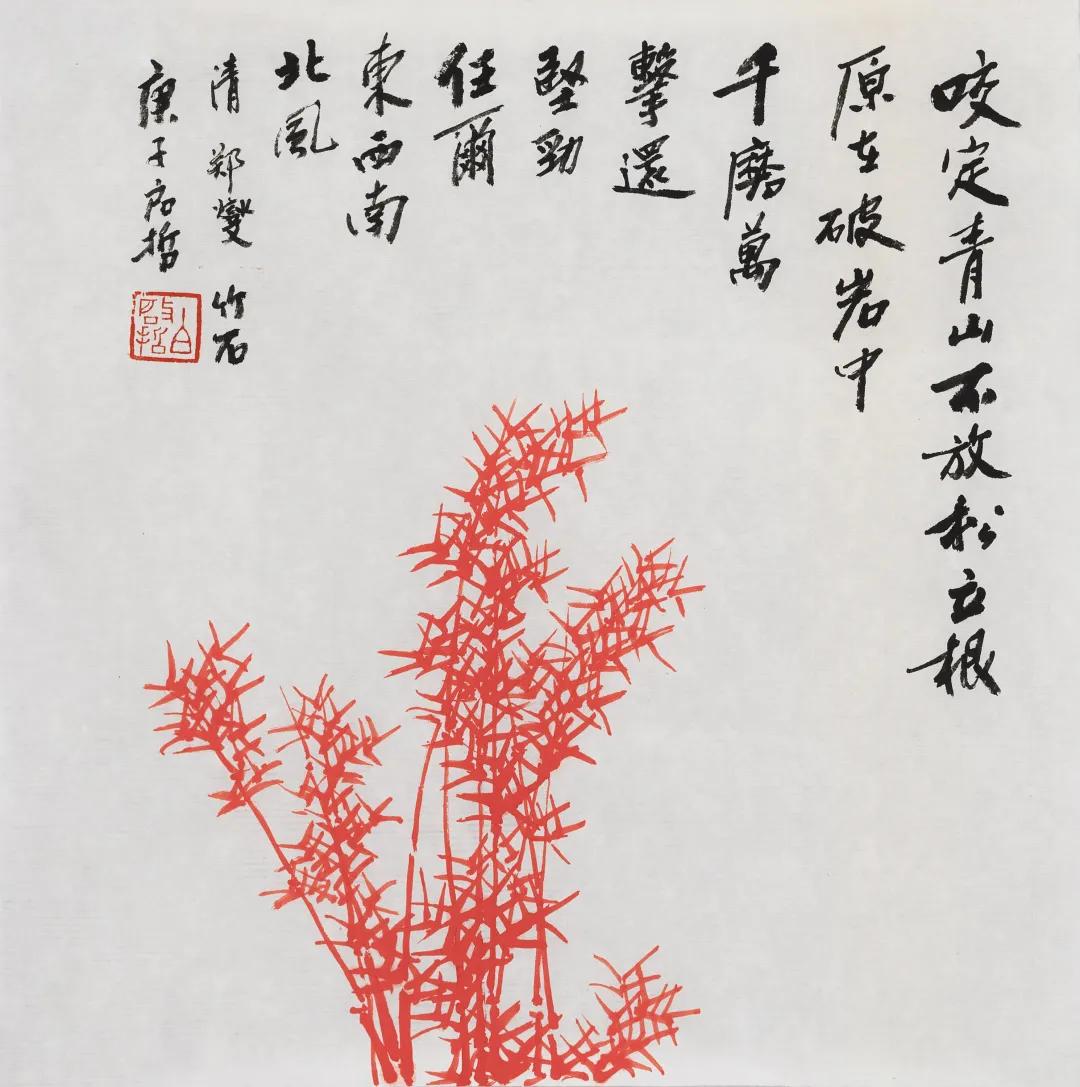 咬定青山不放松立根
原在破岩中
千磨萬
擊還
堅勁
任爾
東西南
北風
清 郑燮 竹石
庚子启哲
白啟哲